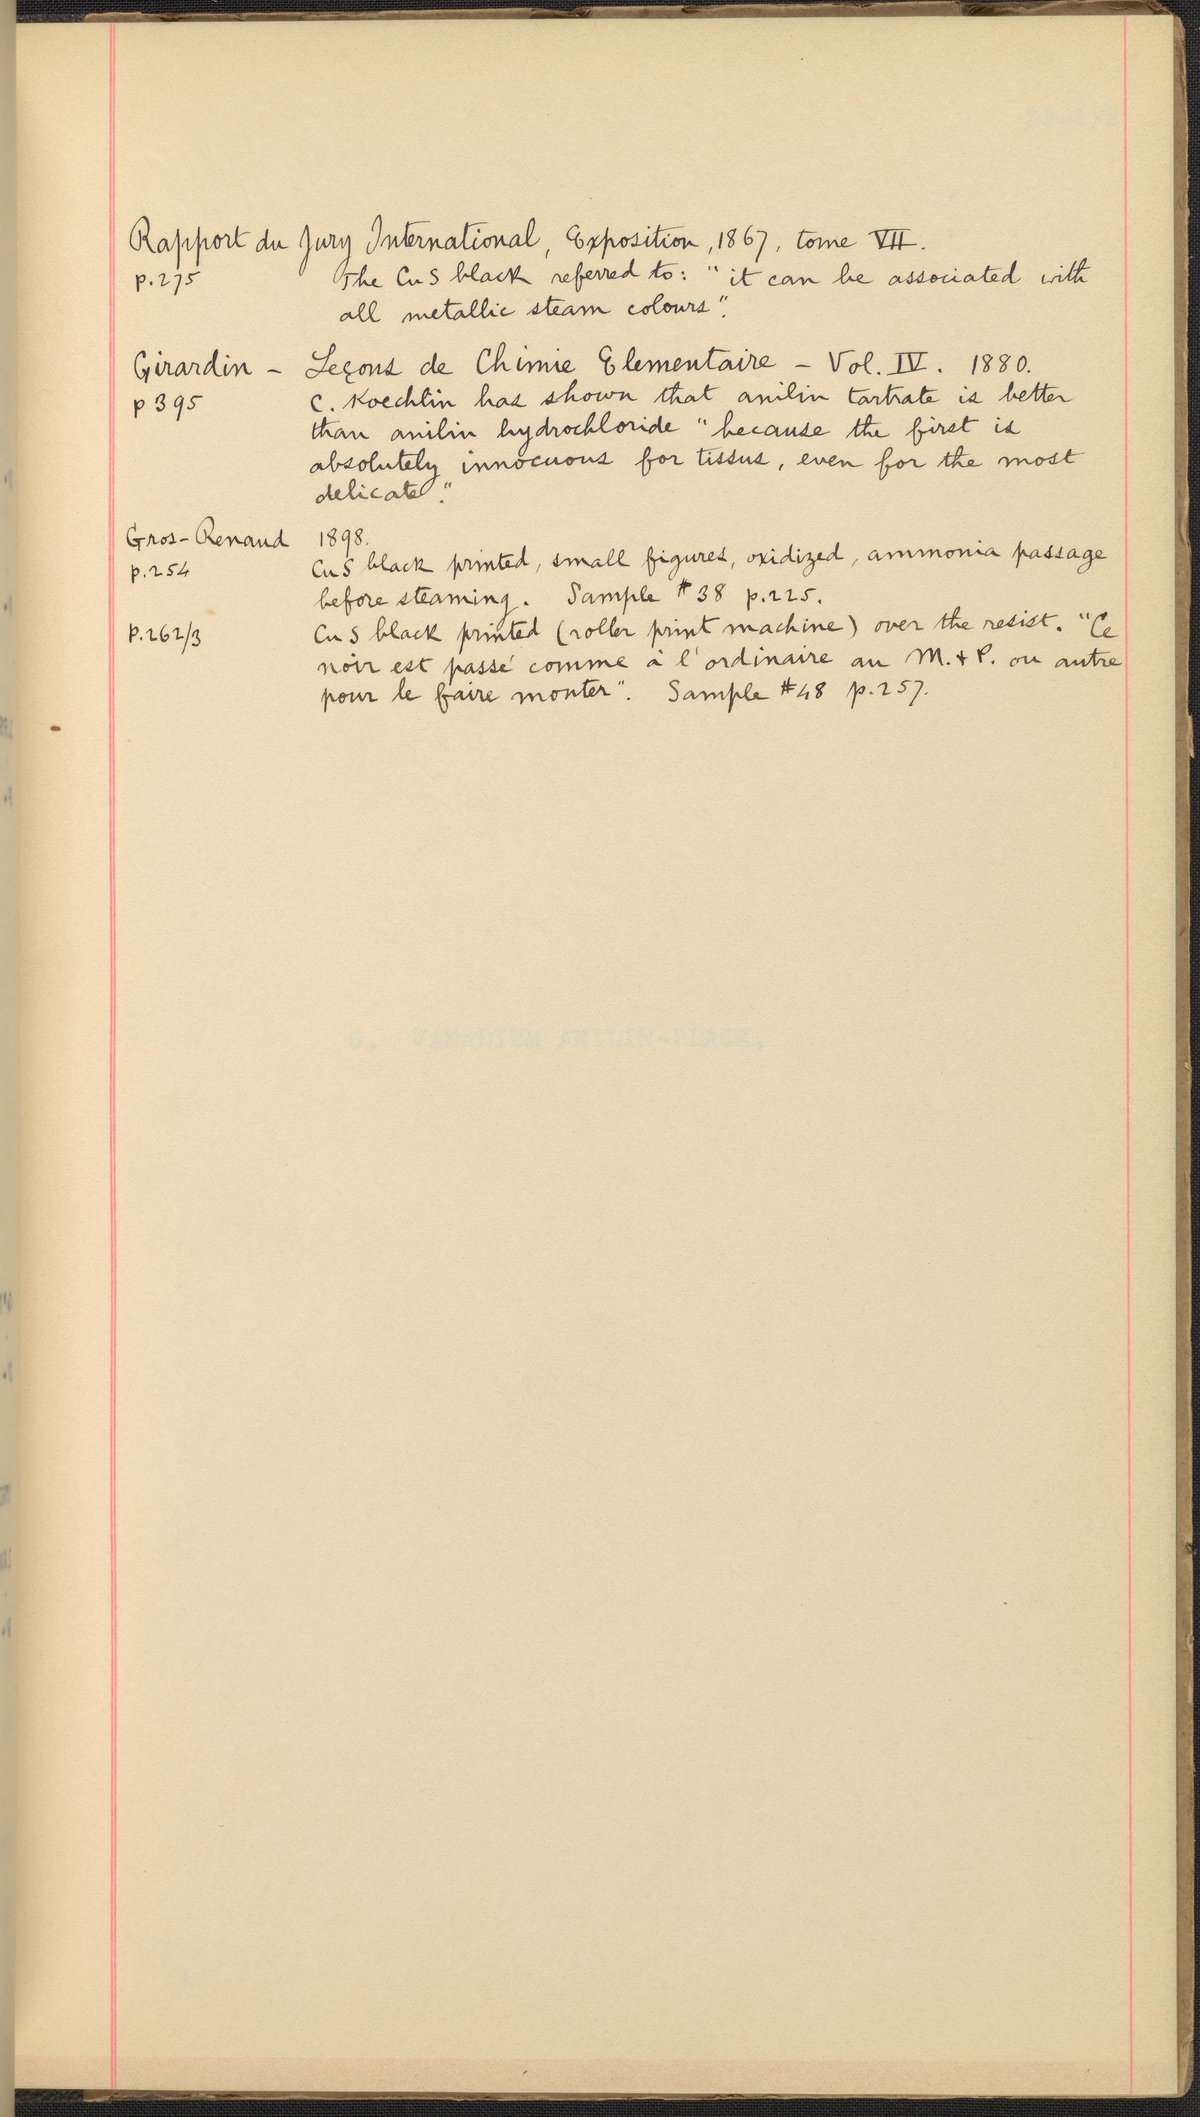 Rapport du Jury International, Exposition, 1867, tome VII.
p.275 The CuS black referred to: "it can be associated with
all metallic steam colours".
Girardin - Leçons de Chimie Elementaire - Vol. IV. 1880.
p 395 C. Koechlin has shown that anilin tartrate is better
than anilin hydrochloride "because the first is
absolutely innocuous for tissus, even for the most
delicate".
Gros-Renaud 1898.
p.254 CuS black printed, small figures, oxidized, ammonia passage
before steaming. Sample #38 p.225.
p.262/3 CuS black printed (roller print machine) over the resist. "Ce
noir est passé comme à l'ordinaire au M. + P. ou autre
pour le faire monter". Sample #48 p.257.